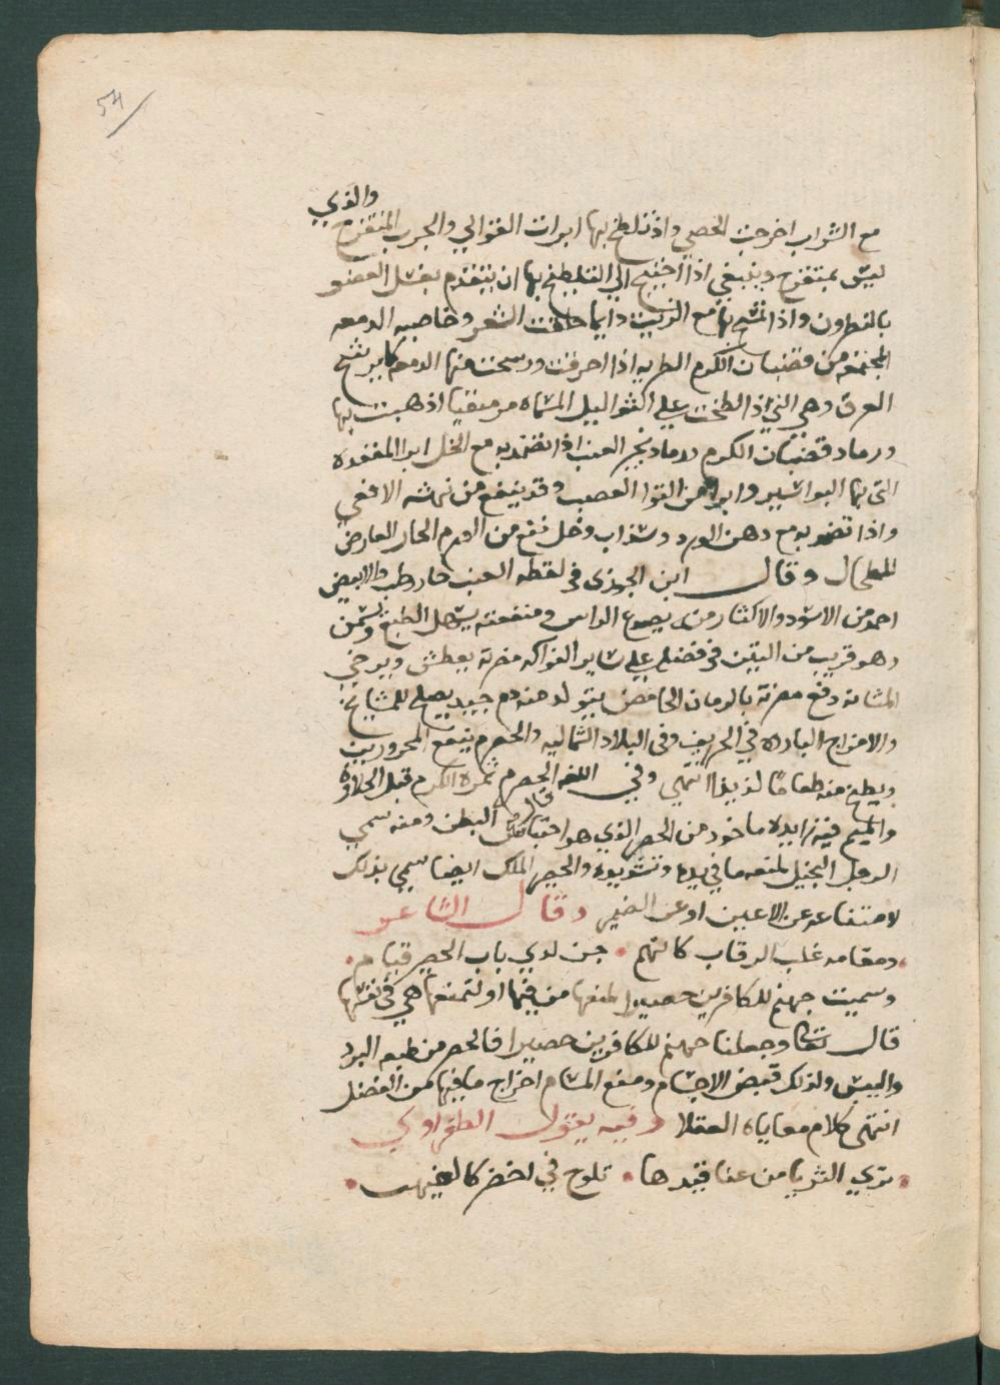 54
والذي
مع الشراب اخرجت الحصي واذا تلطخ بها ابرات القوالي والجرب المتقرح
ليس بمتقرح وينبغي اذا احتيج الي التلطيخ بها ان يتقدم بغسل العضو
بالنطرون واذا تمسح بها مع الزيت دايما حلقت الشعر وخاصيه الدمعه
المجتمعه من قضبان الكرم الطريه اذا احرقت ورسحت منها الدمعه كما يرشح
العرق وهي التي اذا لطخت علي الثواليل المسماه مرميقيا اذهبت بها
ورماد قضبان الكرم ورماد نجير العنب اذا تضمد به مع الخل ابرا المقعده
التي بها البواسير وابرا من التوا العصب وقد ينفع من نهشه الافعي
واذا تضمد به مع دهن الورد وسذاب وخل نفع من الورم الحار العارض
للطحال وقال ابن الجوزي في لقطه العنب حار رطب والابيض
احمد من الاسود والاكثار منه يصدع الراس ومنفعته يسهل الطبع ويسمن
وهو قريب من التين في فضله علي ساير الفواكه مضرته يعطش ويرخي
المثانه دفع مضرته بالرمان الحامض يتولد منه دم جيد يصلح للمشايخ
والامزاج البارده في الخريف وفي البلاد الشماليه والحصرم ينفع المحرورين
ويطبخ منه طعاما لذيذا انتهي وفي اللغه الحصرم ثمرة الكرم قبل الحلاوة
قال
والميم فيه زايده ماخوذ من الحصر الذي هو احتباس البطن ومنه سمي
الرجل البخيل لمنعه ما في يده وتشويره والحصير الملك ايضا سمي بذلك
لامتناعه عن الاعين او عن الضيم وقال الشاعر
ومقامه غلب الرقاب كانهم جن لدي باب الحصير قيام
وسميت جهنم للكافرين حصيرا لمنعها من فيها او لتمنعها هي في نفسها
قال تعالى وجعلنا جهنم للكافرين حصيرا فالحصرم طبعه البرد
واليبس ولذلك قبض الاجسام ومنع المسام اخراج ما فيها من الفضل
انتهي كلام معاياه العقلا وفيه يقول الطغراوي
تري الثريا من عناقيدها تلوح في اخضر كالغيهب